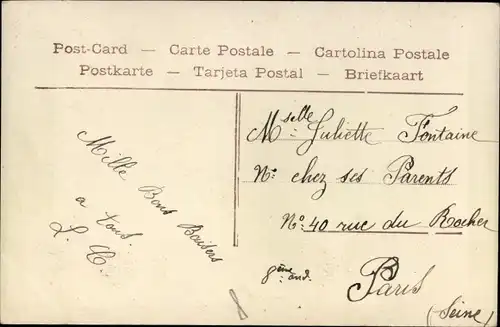 Post-Card — Carte Postale — Cartolina Postale
Postkarte — Tarjeta Postal — Briefkaart
Mille Bons Baisers
a tous.
L. C.
Mselle Juliette Fontaine
N° chez ses Parents
N° 40 rue du Rocher
8ème arrd.
Paris
(Seine)